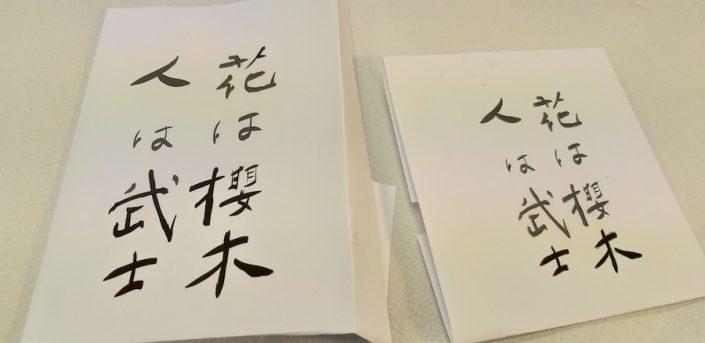 花は櫻木
人は武士
花は櫻木
人は武士